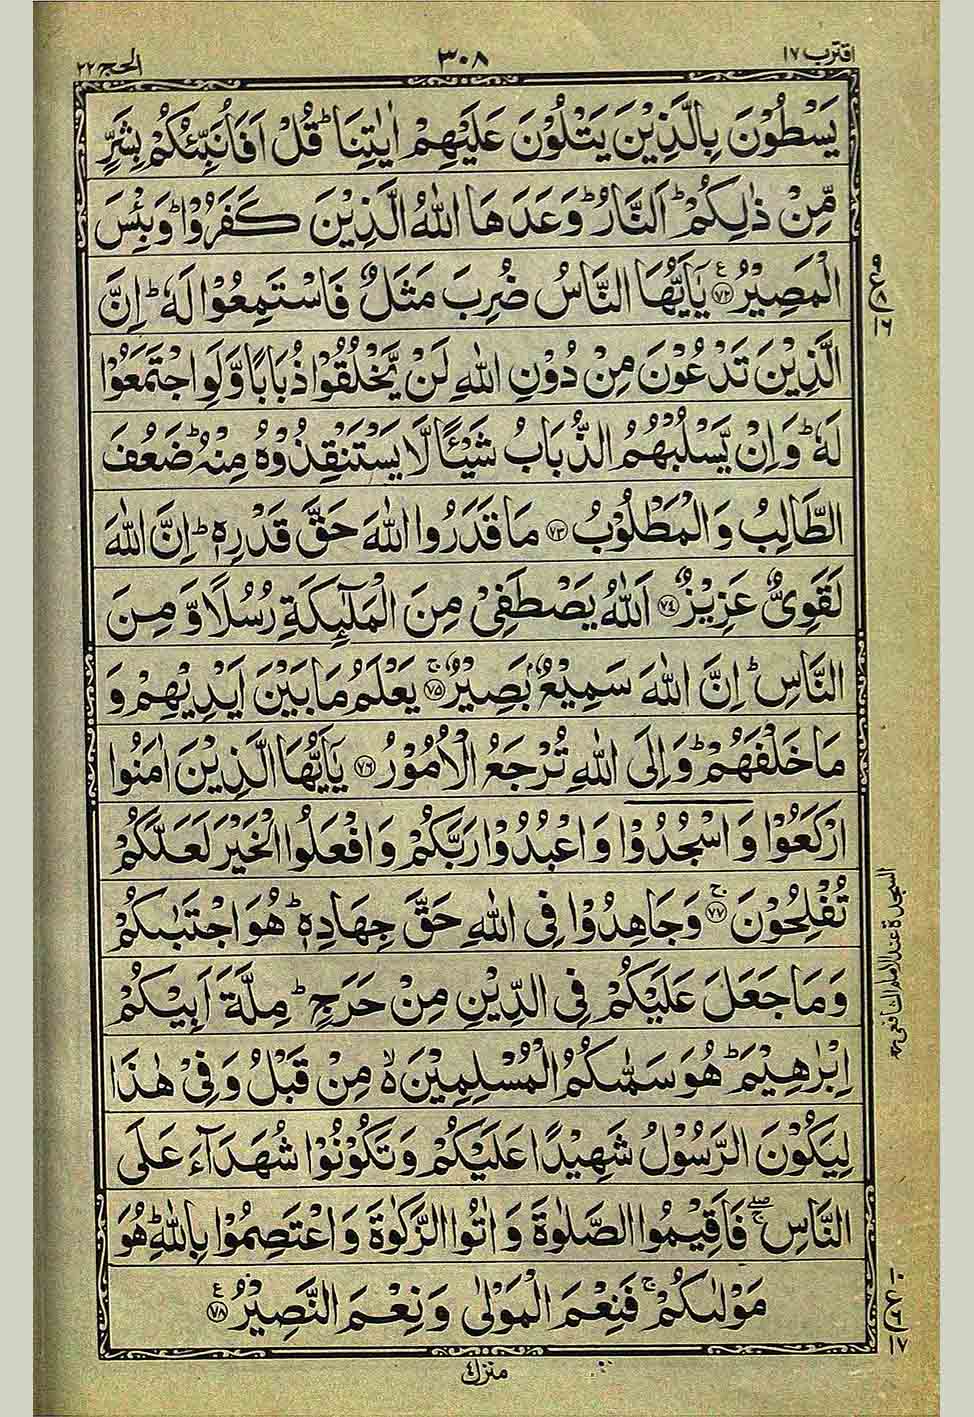 اقترب ١٧
٣٠٨
الحج ٢٢
يَسْطُوْنَ بِالَّذِيْنَ يَتْلُوْنَ عَلَيْهِمْ اٰيٰتِنَا ؕ قُلْ اَفَاُنَبِّئُكُمْ بِشَرٍّ
مِّنْ ذٰلِكُمْ ؕ اَلنَّارُ ؕ وَعَدَهَا اللّٰهُ الَّذِيْنَ كَفَرُوْا ؕ وَبِئْسَ
الْمَصِيْرُ ﴿٧٢﴾ يٰۤاَيُّهَا النَّاسُ ضُرِبَ مَثَلٌ فَاسْتَمِعُوْا لَهٗ ؕ اِنَّ
الَّذِيْنَ تَدْعُوْنَ مِنْ دُوْنِ اللّٰهِ لَنْ يَّخْلُقُوْا ذُبَابًا وَّلَوِ اجْتَمَعُوْا
لَهٗ ؕ وَاِنْ يَّسْلُبْهُمُ الذُّبَابُ شَيْئًا لَّا يَسْتَنْقِذُوْهُ مِنْهُ ؕ ضَعُفَ
الطَّالِبُ وَالْمَطْلُوْبُ ﴿٧٣﴾ مَا قَدَرُوا اللّٰهَ حَقَّ قَدْرِهٖ ؕ اِنَّ اللّٰهَ
لَقَوِيٌّ عَزِيْزٌ ﴿٧٤﴾ اَللّٰهُ يَصْطَفِيْ مِنَ الْمَلٰٓئِكَةِ رُسُلًا وَّمِنَ
النَّاسِ ؕ اِنَّ اللّٰهَ سَمِيْعٌۢ بَصِيْرٌ ﴿٧٥﴾ يَعْلَمُ مَا بَيْنَ اَيْدِيْهِمْ وَ
مَا خَلْفَهُمْ ؕ وَاِلَى اللّٰهِ تُرْجَعُ الْاُمُوْرُ ﴿٧٦﴾ يٰۤاَيُّهَا الَّذِيْنَ اٰمَنُوا
ارْكَعُوْا وَاسْجُدُوْا وَاعْبُدُوْا رَبَّكُمْ وَافْعَلُوا الْخَيْرَ لَعَلَّكُمْ
تُفْلِحُوْنَ ﴿٧٧﴾ وَجَاهِدُوْا فِي اللّٰهِ حَقَّ جِهَادِهٖ ؕ هُوَ اجْتَبٰىكُمْ
وَمَا جَعَلَ عَلَيْكُمْ فِي الدِّيْنِ مِنْ حَرَجٍ ؕ مِلَّةَ اَبِيْكُمْ
اِبْرٰهِيْمَ ؕ هُوَ سَمّٰىكُمُ الْمُسْلِمِيْنَ ۙ مِنْ قَبْلُ وَفِيْ هٰذَا
لِيَكُوْنَ الرَّسُوْلُ شَهِيْدًا عَلَيْكُمْ وَتَكُوْنُوْا شُهَدَآءَ عَلَى
النَّاسِ ۚۖ فَاَقِيْمُوا الصَّلٰوةَ وَاٰتُوا الزَّكٰوةَ وَاعْتَصِمُوْا بِاللّٰهِ ؕ هُوَ
مَوْلٰىكُمْ ۚ فَنِعْمَ الْمَوْلٰى وَنِعْمَ النَّصِيْرُ ﴿٧٨﴾
منزل ٤
٩
ع ٨
٦
السجدة عند الامام الشافعي
١٠
ع ٦
١٧